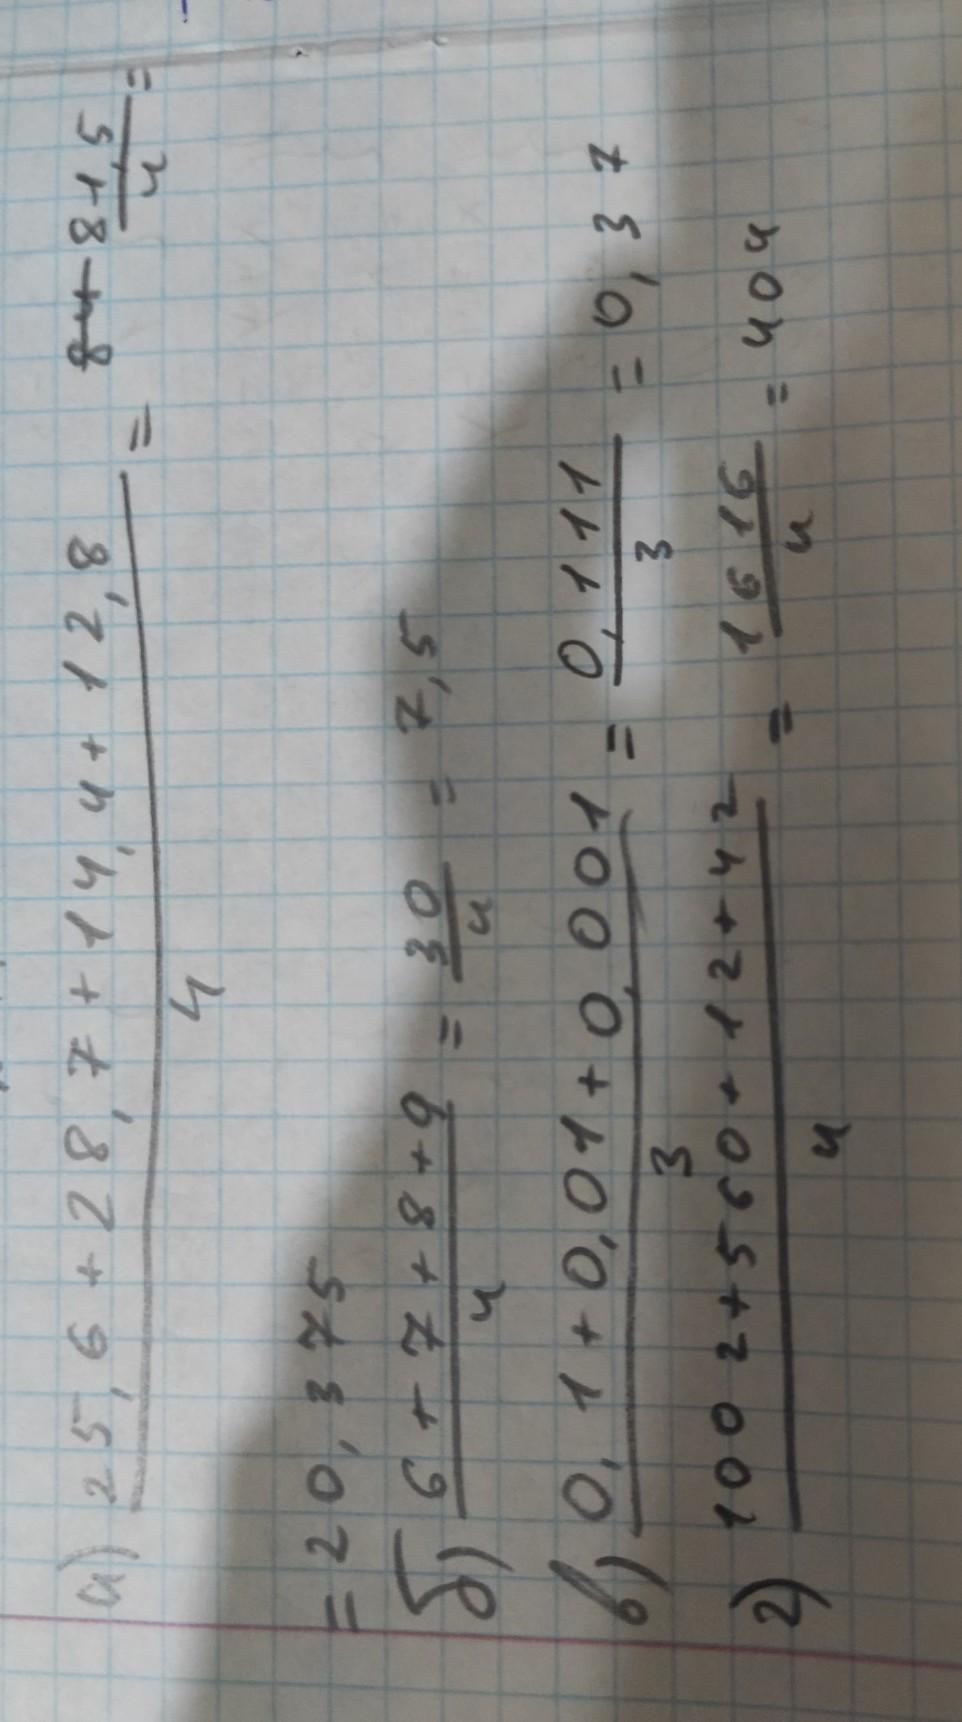 а) 25,6+28,7+14,4+12,8 / 4 = 81,5 / 4 =
= 20,375
б) 6+7+8+9 / 4 = 30 / 4 = 7,5
в) 0,1+0,01+0,001 / 3 = 0,111 / 3 = 0,37
г) 1002+560+12+42 / 4 = 1616 / 4 = 404